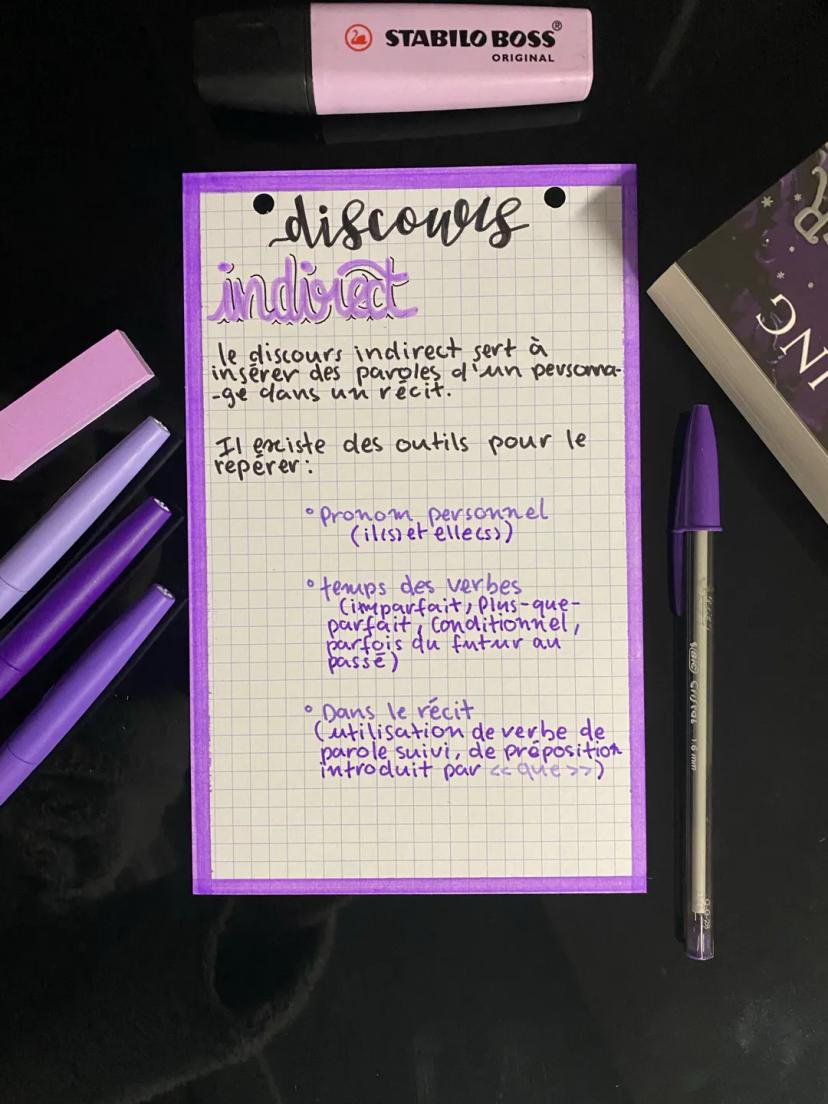 STABILO BOSS®
ORIGINAL
discours
indirect
le discours indirect sert à
insérer des paroles d'un personna-
-ge dans un récit.
Il existe des outils pour le
repérer:
° Pronom personnel
(il(s) et elle(s))
° temps des verbes
(imparfait, plus-que-
parfait, conditionnel,
parfois du futur au
passé)
° Dans le récit
(utilisation de verbe de
parole suivi, de préposition
introduit par << que >>)
Cristal 1.6mm